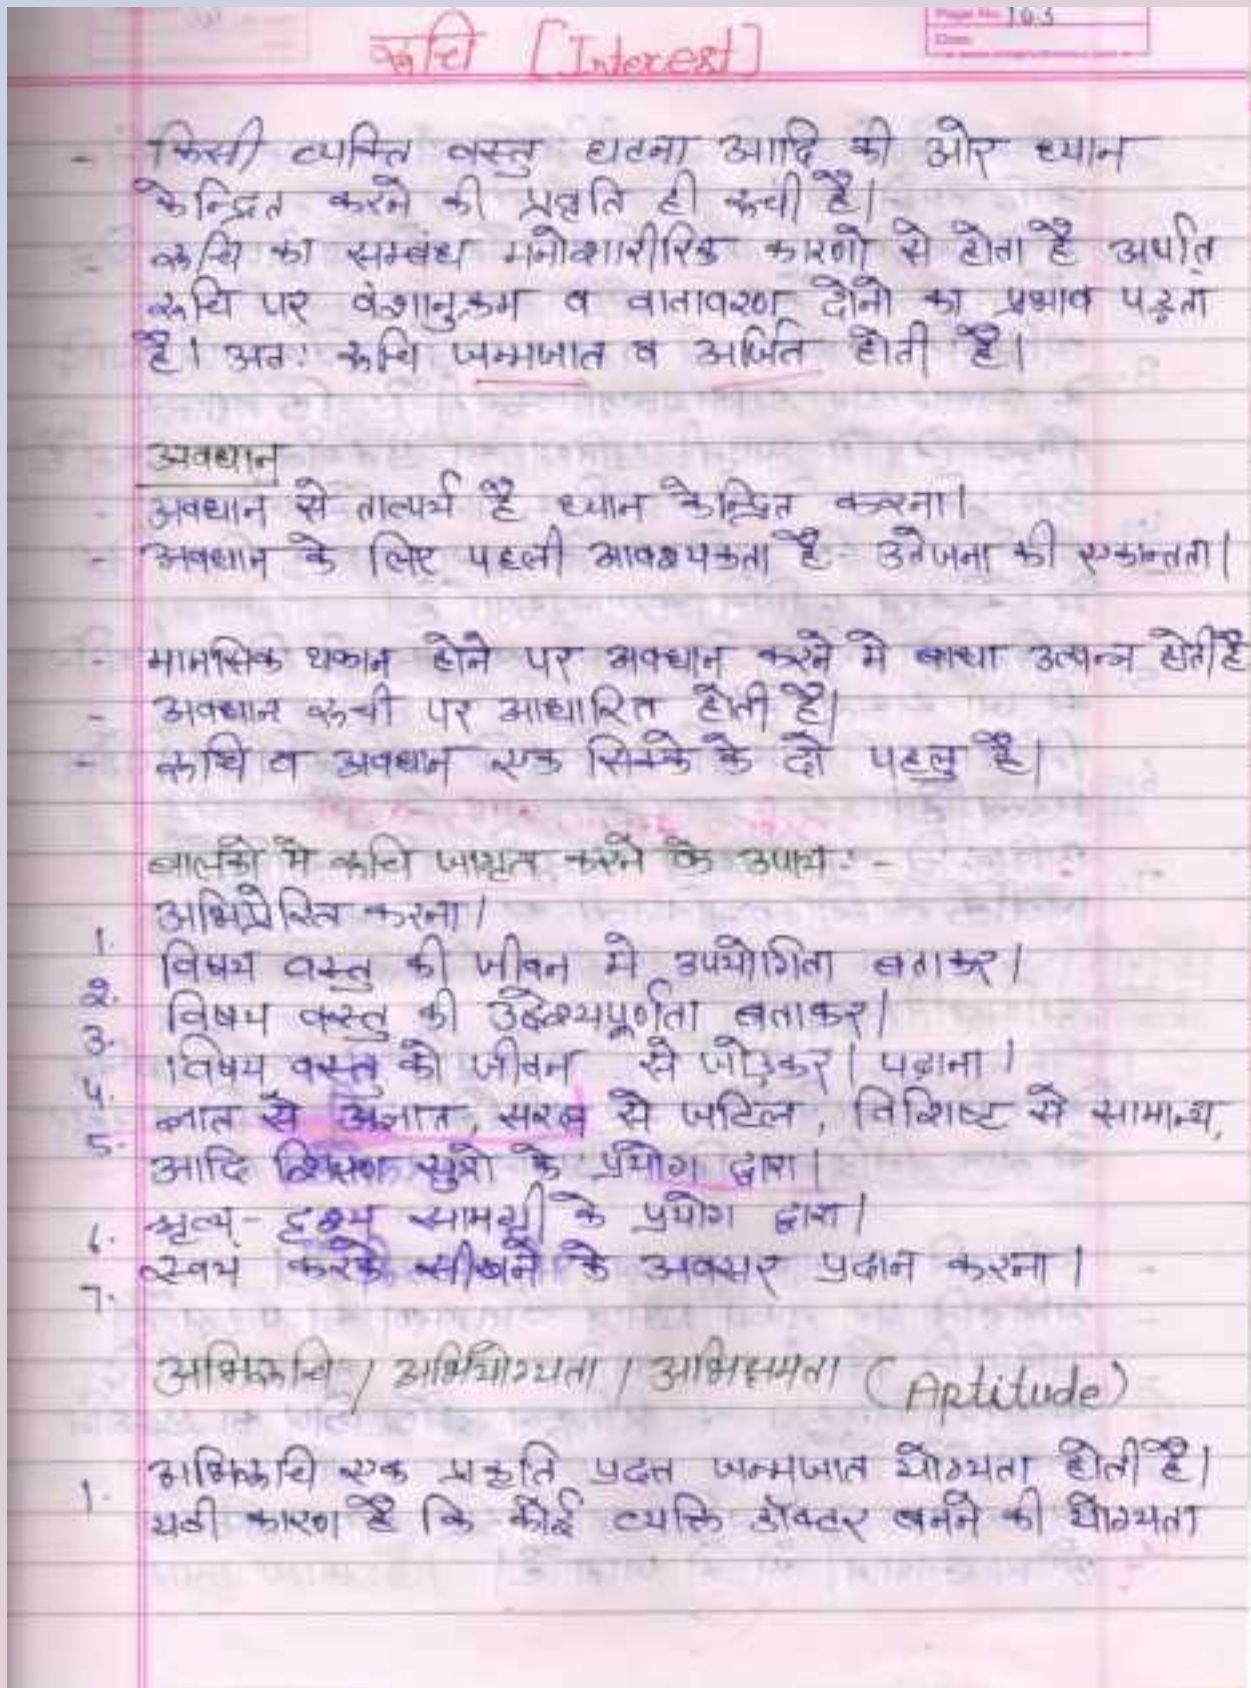 Page No. 163
Date:
रूचि [Interest]
- किसी व्यक्ति वस्तु घटना आदि की ओर ध्यान
केन्द्रित करने की प्रवृति ही रूची है।
- रूचि का सम्बंध मनोशारीरिक कारणो से होता है अर्थात्
रूचि पर वंशानुक्रम व वातावरण दोनो का प्रभाव पड़ता
है। अतः रूचि जन्मजात व अर्जित होती है।
अवधान
- अवधान से तात्पर्य है ध्यान केन्द्रित करना।
- अवधान के लिए पहली आवश्यकता है उतेजना की एकान्तता।
- मानसिक थकान होने पर अवधान करने मे बाधा उत्पन्न होती है
- अवधान रूची पर आधारित होती है।
- रूचि व अवधान एक सिक्के के दो पहलु है।
बालको मे रूचि जागृत करने के उपाय :-
1. अभिप्रेरित करना।
2. विषय वस्तु की जीवन मे उपयोगिता बताकर।
3. विषय वस्तु की उद्देश्यपूर्णता बताकर।
4. विषय वस्तु को जीवन से जोड़कर। पढ़ाना।
5. ज्ञात से अज्ञात, सरल से जटिल, विशिष्ट से सामान्य,
आदि शिक्षण सुत्रो के प्रयोग द्वारा।
6. श्रृव्य - दृश्य सामग्री के प्रयोग द्वारा।
7. स्वयं करके सीखने के अवसर प्रदान करना।
अभिरूचि / अभियोग्यता / अभिक्षमता (Aptitude)
1. अभिरूचि एक प्रकृति प्रदत जन्मजात योग्यता होती है।
यही कारण है कि कोई व्यक्ति डॉक्टर बनने की योग्यता